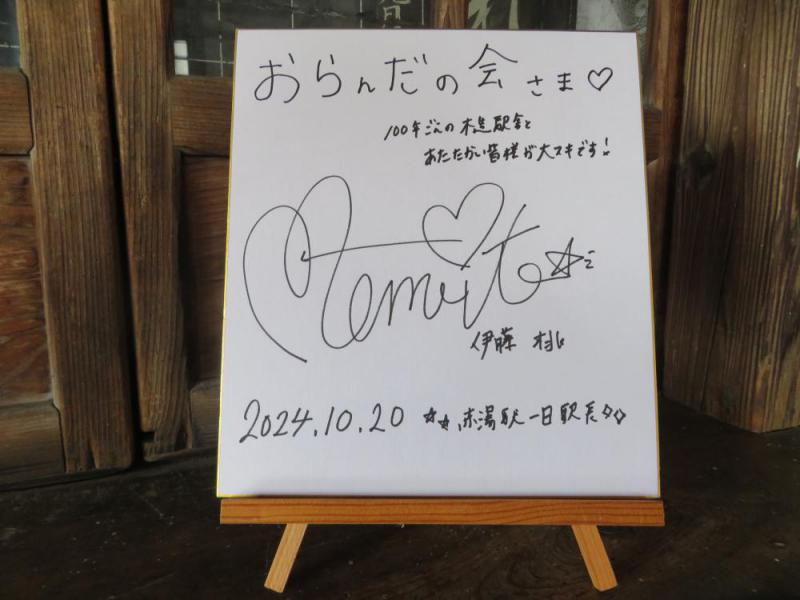 おらんだの会さま♡
100年ごえの木造駅舎と
あたたかい皆様が大スキです!
Momoito☆ミ
伊藤 桃
2024.10.20 ☆☆赤湯駅一日駅長